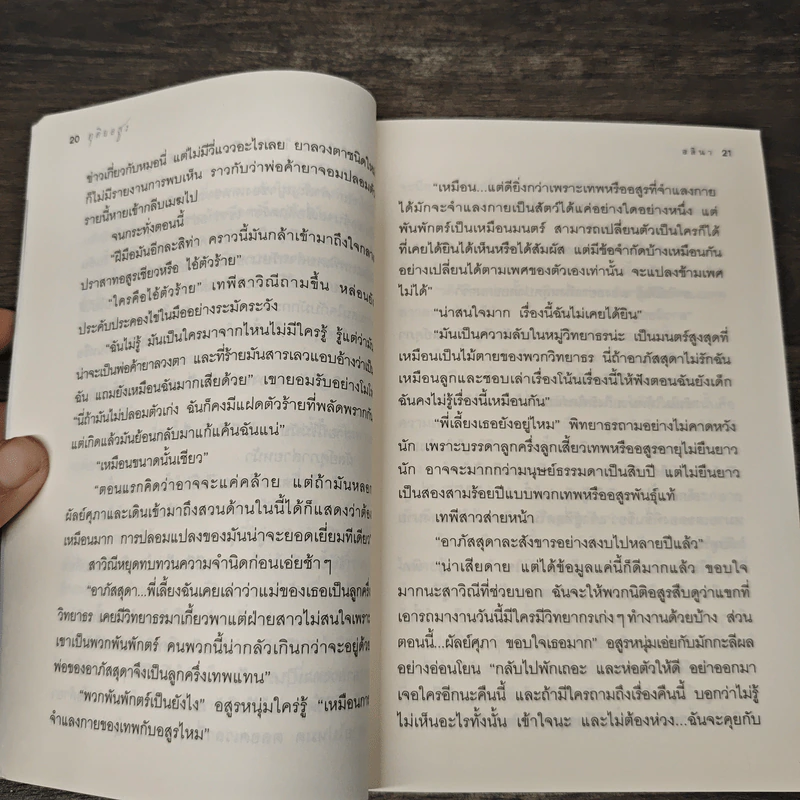 20 ยุติยอสูร
ข่าวเกี่ยวกับหมอนี่ แต่ไม่มีวี่แววอะไรเลย ยาลวงตาชนิดใหม่
ก็ไม่มีรายงานการพบเห็น ราวกับว่าพ่อค้ายาจอมปลอมตัว
รายนี้หายเข้ากลีบเมฆไป
จนกระทั่งตอนนี้
“ฝีมือมันอีกละสิท่า คราวนี้มันกล้าเข้ามาถึงใจกลาง
ปราสาทอสูรเชียวหรือ ไอ้ตัวร้าย”
“ใครคือไอ้ตัวร้าย” เทพีสาวิณีถามขึ้น หล่อนยัง
ประคับประคองไข่ในมืออย่างระมัดระวัง
“ฉันไม่รู้ มันเป็นใครมาจากไหนไม่มีใครรู้ รู้แต่ว่ามัน
น่าจะเป็นพ่อค้ายาลวงตา และที่ร้ายมันสารเลวแอบอ้างว่าเป็น
ฉัน แถมยังเหมือนฉันมากเสียด้วย” เขายอมรับอย่างโมโห
“นี่ถ้ามันไม่ปลอมตัวเก่ง ฉันก็คงมีแฝดตัวร้ายที่พลัดพรากกัน
แต่เกิดแล้วมันย้อนกลับมาแก้แค้นฉันแน่”
“เหมือนขนาดนั้นเชียว”
“ตอนแรกคิดว่าอาจจะแค่คล้าย แต่ถ้ามันหลอก
ผัลย์ศุภาและเดินเข้ามาถึงสวนด้านในนี้ได้ก็แสดงว่าต้อง
เหมือนมาก การปลอมแปลงของมันน่าจะยอดเยี่ยมทีเดียว”
สาวิณีหยุดทบทวนความจำนิดก่อนเอ่ยช้าๆ
“อาภัสสุดา...พี่เลี้ยงฉันเคยเล่าว่าแม่ของเธอเป็นลูกครึ่ง
วิทยาธร เคยมีวิทยาธรมาเกี้ยวพาแต่ฝ่ายสาวไม่สนใจเพราะ
เขาเป็นพวกพันพักตร์ คนพวกนี้น่ากลัวเกินกว่าจะอยู่ด้วย
พ่อของอาภัสสุดาจึงเป็นลูกครึ่งเทพแทน”
“พวกพันพักตร์เป็นยังไง” อสูรหนุ่มใคร่รู้ “เหมือนการ
จำแลงกายของเทพกับอสูรไหม”
สลินา 21
“เหมือน...แต่ดียิ่งกว่าเพราะเทพหรืออสูรที่จำแลงกาย
ได้มักจะจำแลงกายเป็นสัตว์ได้แค่อย่างใดอย่างหนึ่ง แต่
พันพักตร์เป็นเหมือนมนตร์ สามารถเปลี่ยนตัวเป็นใครก็ได้
ที่เคยได้ยินได้เห็นหรือได้สัมผัส แต่มีข้อจำกัดบ้างเหมือนกัน
อย่างเปลี่ยนได้ตามเพศของตัวเองเท่านั้น จะแปลงข้ามเพศ
ไม่ได้”
“น่าสนใจมาก เรื่องนี้ฉันไม่เคยได้ยิน”
“มันเป็นความลับในหมู่วิทยาธรน่ะ เป็นมนตร์สูงสุดที่
เหมือนเป็นไม้ตายของพวกวิทยาธร นี่ถ้าอาภัสสุดาไม่รักฉัน
เหมือนลูกและชอบเล่าเรื่องโน้นเรื่องนี้ให้ฟังตอนฉันยังเด็ก
ฉันคงไม่รู้เรื่องนี้เหมือนกัน”
“พี่เลี้ยงเธอยังอยู่ไหม” พิทยาธรถามอย่างไม่คาดหวัง
นัก เพราะบรรดาลูกครึ่งลูกเสี้ยวเทพหรืออสูรอายุไม่ยืนยาว
นัก อาจจะมากกว่ามนุษย์ธรรมดาเป็นสิบปี แต่ไม่ยืนยาว
เป็นสองสามร้อยปีแบบพวกเทพหรืออสูรพันธุ์แท้
เทพีสาวส่ายหน้า
“อาภัสสุดาละสังขารอย่างสงบไปหลายปีแล้ว”
“น่าเสียดาย แต่ได้ข้อมูลแค่นี้ก็ดีมากแล้ว ขอบใจ
มากนะสาวิณีที่ช่วยบอก ฉันจะให้พวกนิติอสูรสืบดูว่าแขกที่
เอารถมางานวันนี้มีใครมีวิทยากรเก่งๆ ทำงานด้วยบ้าง ส่วน
ตอนนี้...ผัลย์ศุภา ขอบใจเธอมาก” อสูรหนุ่มเอ่ยกับมักกะลีผล
อย่างอ่อนโยน “กลับไปพักเถอะ และห่อตัวให้ดี อย่าออกมา
เจอใครอีกนะคืนนี้ และถ้ามีใครถามถึงเรื่องคืนนี้ บอกว่าไม่รู้
ไม่เห็นอะไรทั้งนั้น เข้าใจนะ และไม่ต้องห่วง...ฉันจะคุยกับ